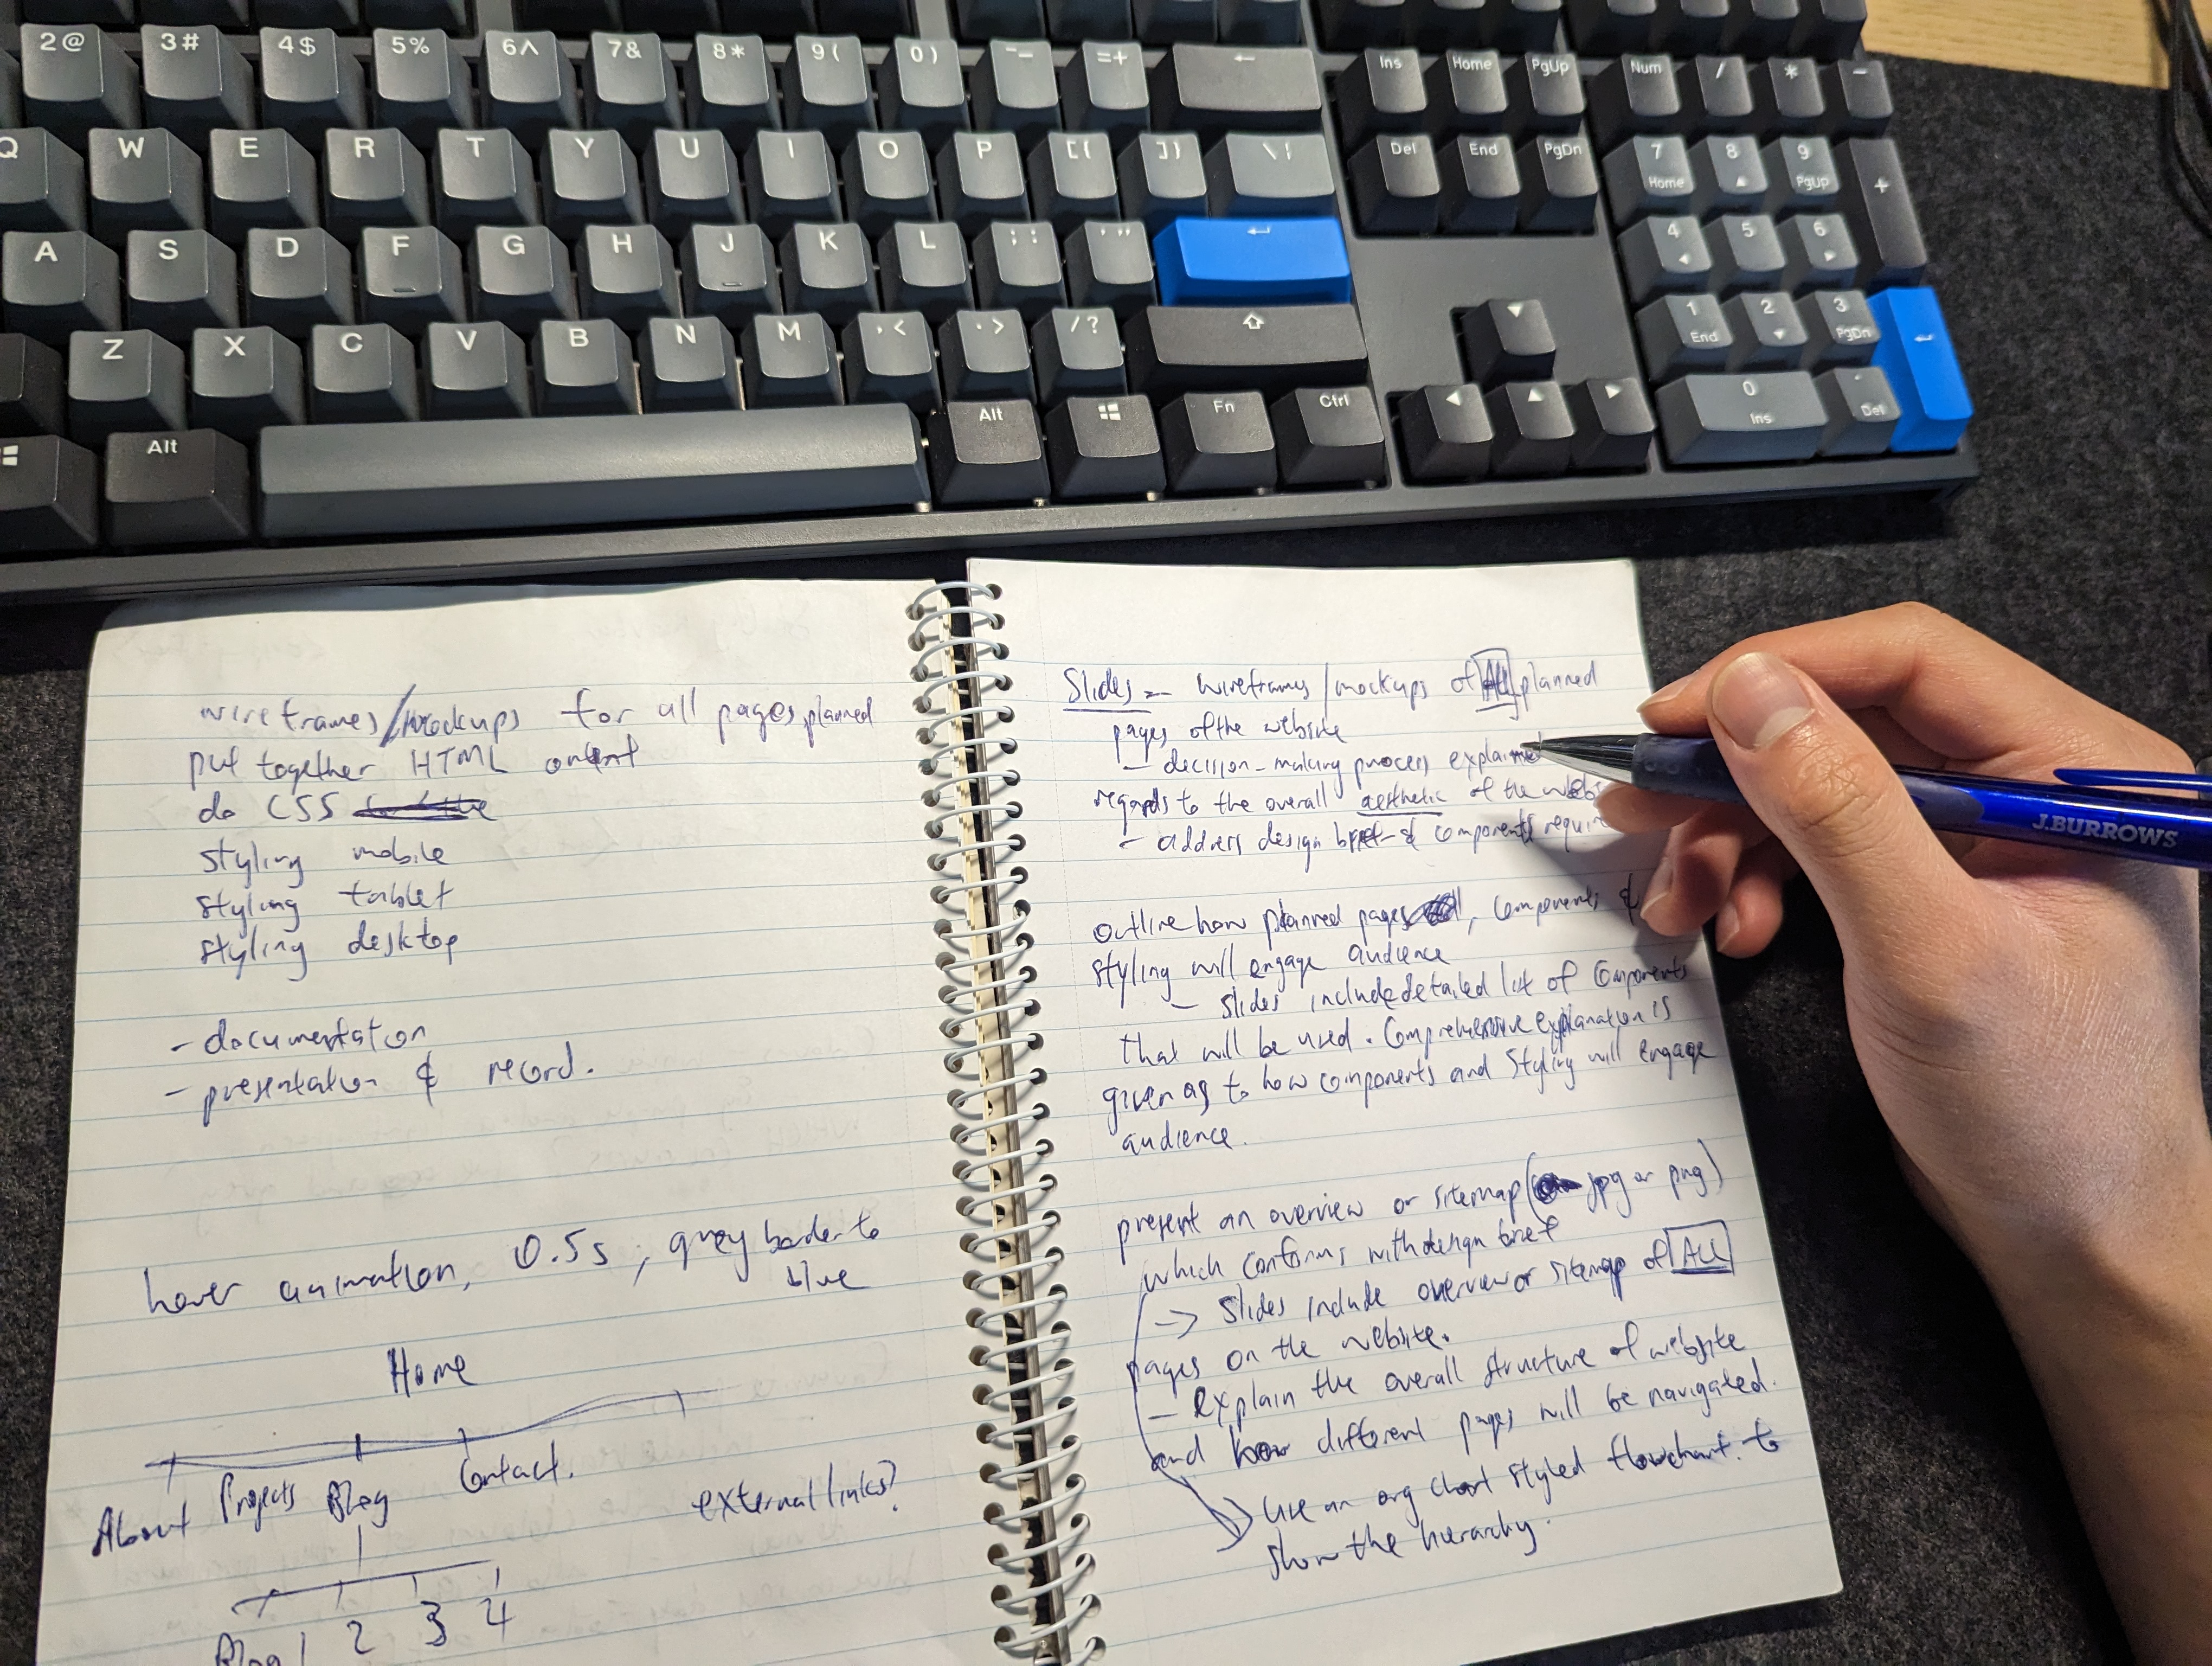 2@ 3# 4$ 5% 6^ 7& 8* 9( 0) -_ =+ ←
Ins Home PgUp Num / * -
Q W E R T Y U I O P [{ ]} \¦
Del End PgDn 7 Home 8 9 PgUp +
A S D F G H J K L ;: '"
4 5 6
Z X C V B N M ,< .> /?
1 End 2 3 PgDn
Alt Alt Fn Ctrl
0 Ins . Del
wireframes/mockups for all pages planned
put together HTML content
do CSS
styling mobile
styling tablet
styling desktop
- documentation
- presentation & record.
hover animation, 0.5s, grey border to
blue
Home
About Projects Blog Contact.
external links?
Blog 1 2 3 4
Slides - wireframes/mockups of ALL planned
pages of the website
- decision-making process explained
regards to the overall aesthetic of the
- address design brief & components
outline how planned pages, components &
styling will engage audience
- slides include detailed list of components
that will be used. Comprehensive explanation is
given as to how components and styling will engage
audience.
present an overview or sitemap ( jpg or png)
which conforms with design brief
-> slides include overview or sitemap of ALL
pages on the website.
- explain the overall structure of website
and how different pages will be navigated.
use an org chart styled flowchart to
show the hierarchy.
J.BURROWS